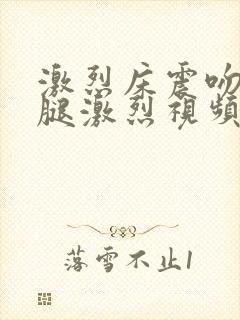 激烈床震吻
腿激烈視頻
落雪不止1